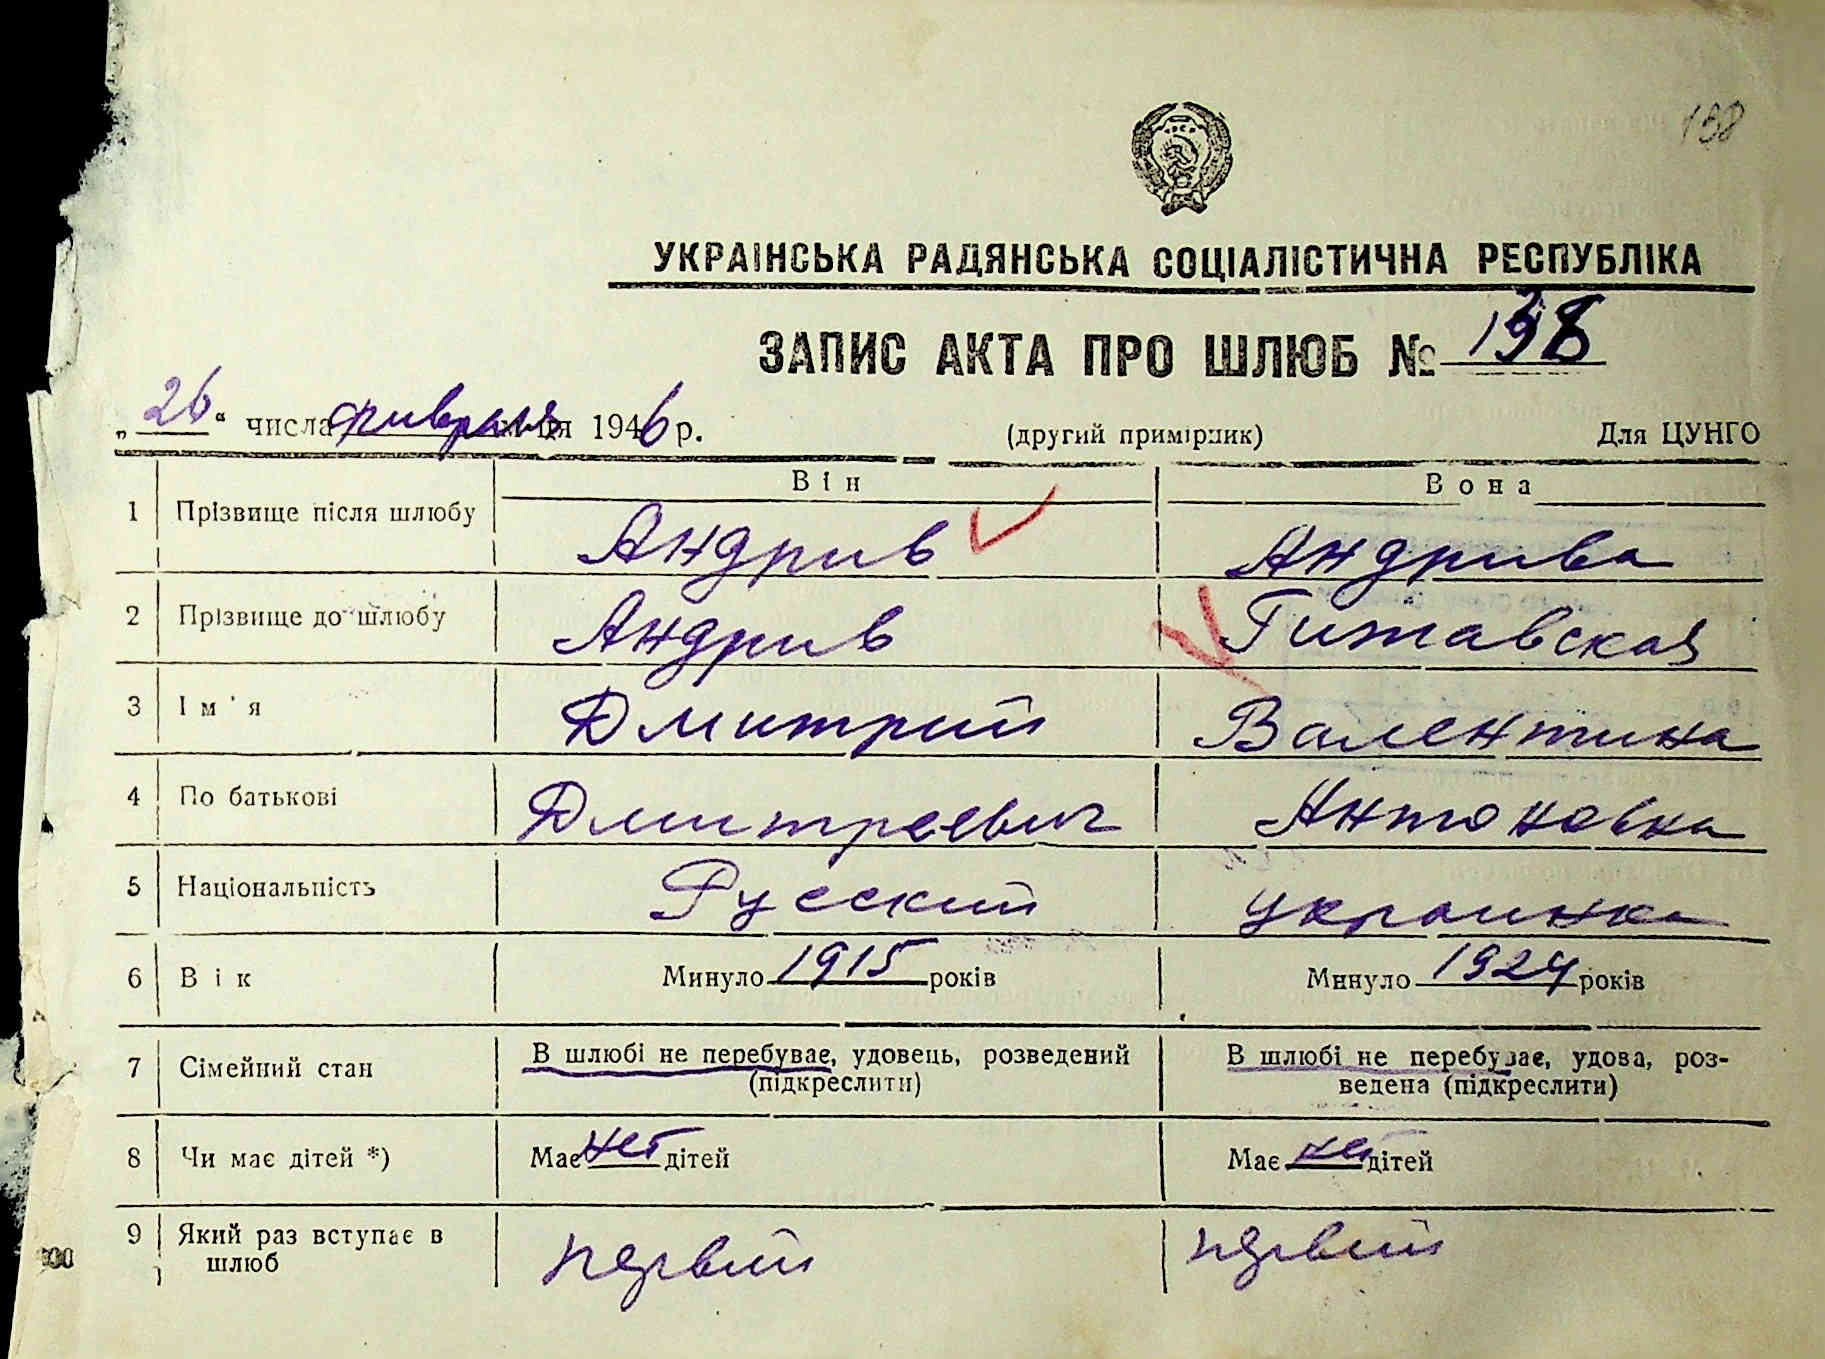 138
УКРАІНСЬКА РАДЯНСЬКА СОЦІАЛІСТИЧНА РЕСПУБЛІКА
ЗАПИС АКТА ПРО ШЛЮБ № 138
„26“ числа февраля м-ця 1946 р. (другий примірник) Для ЦУНГО
Він Вона
1 Прізвище після шлюбу Андрив Андрива
2 Прізвище до шлюбу Андрив Гижавская
3 Ім'я Дмитрий Валентина
4 По батькові Дмитреевич Антоновна
5 Національність Русский украинка
6 Вік Минуло 1915 років Минуло 1924 років
7 Сімейний стан В шлюбі не перебуває, удовець, розведений В шлюбі не перебуває, удова, роз-
(підкреслити) ведена (підкреслити)
8 Чи має дітей *) Має нет дітей Має нет дітей
9 Який раз вступає в первый первый
шлюб